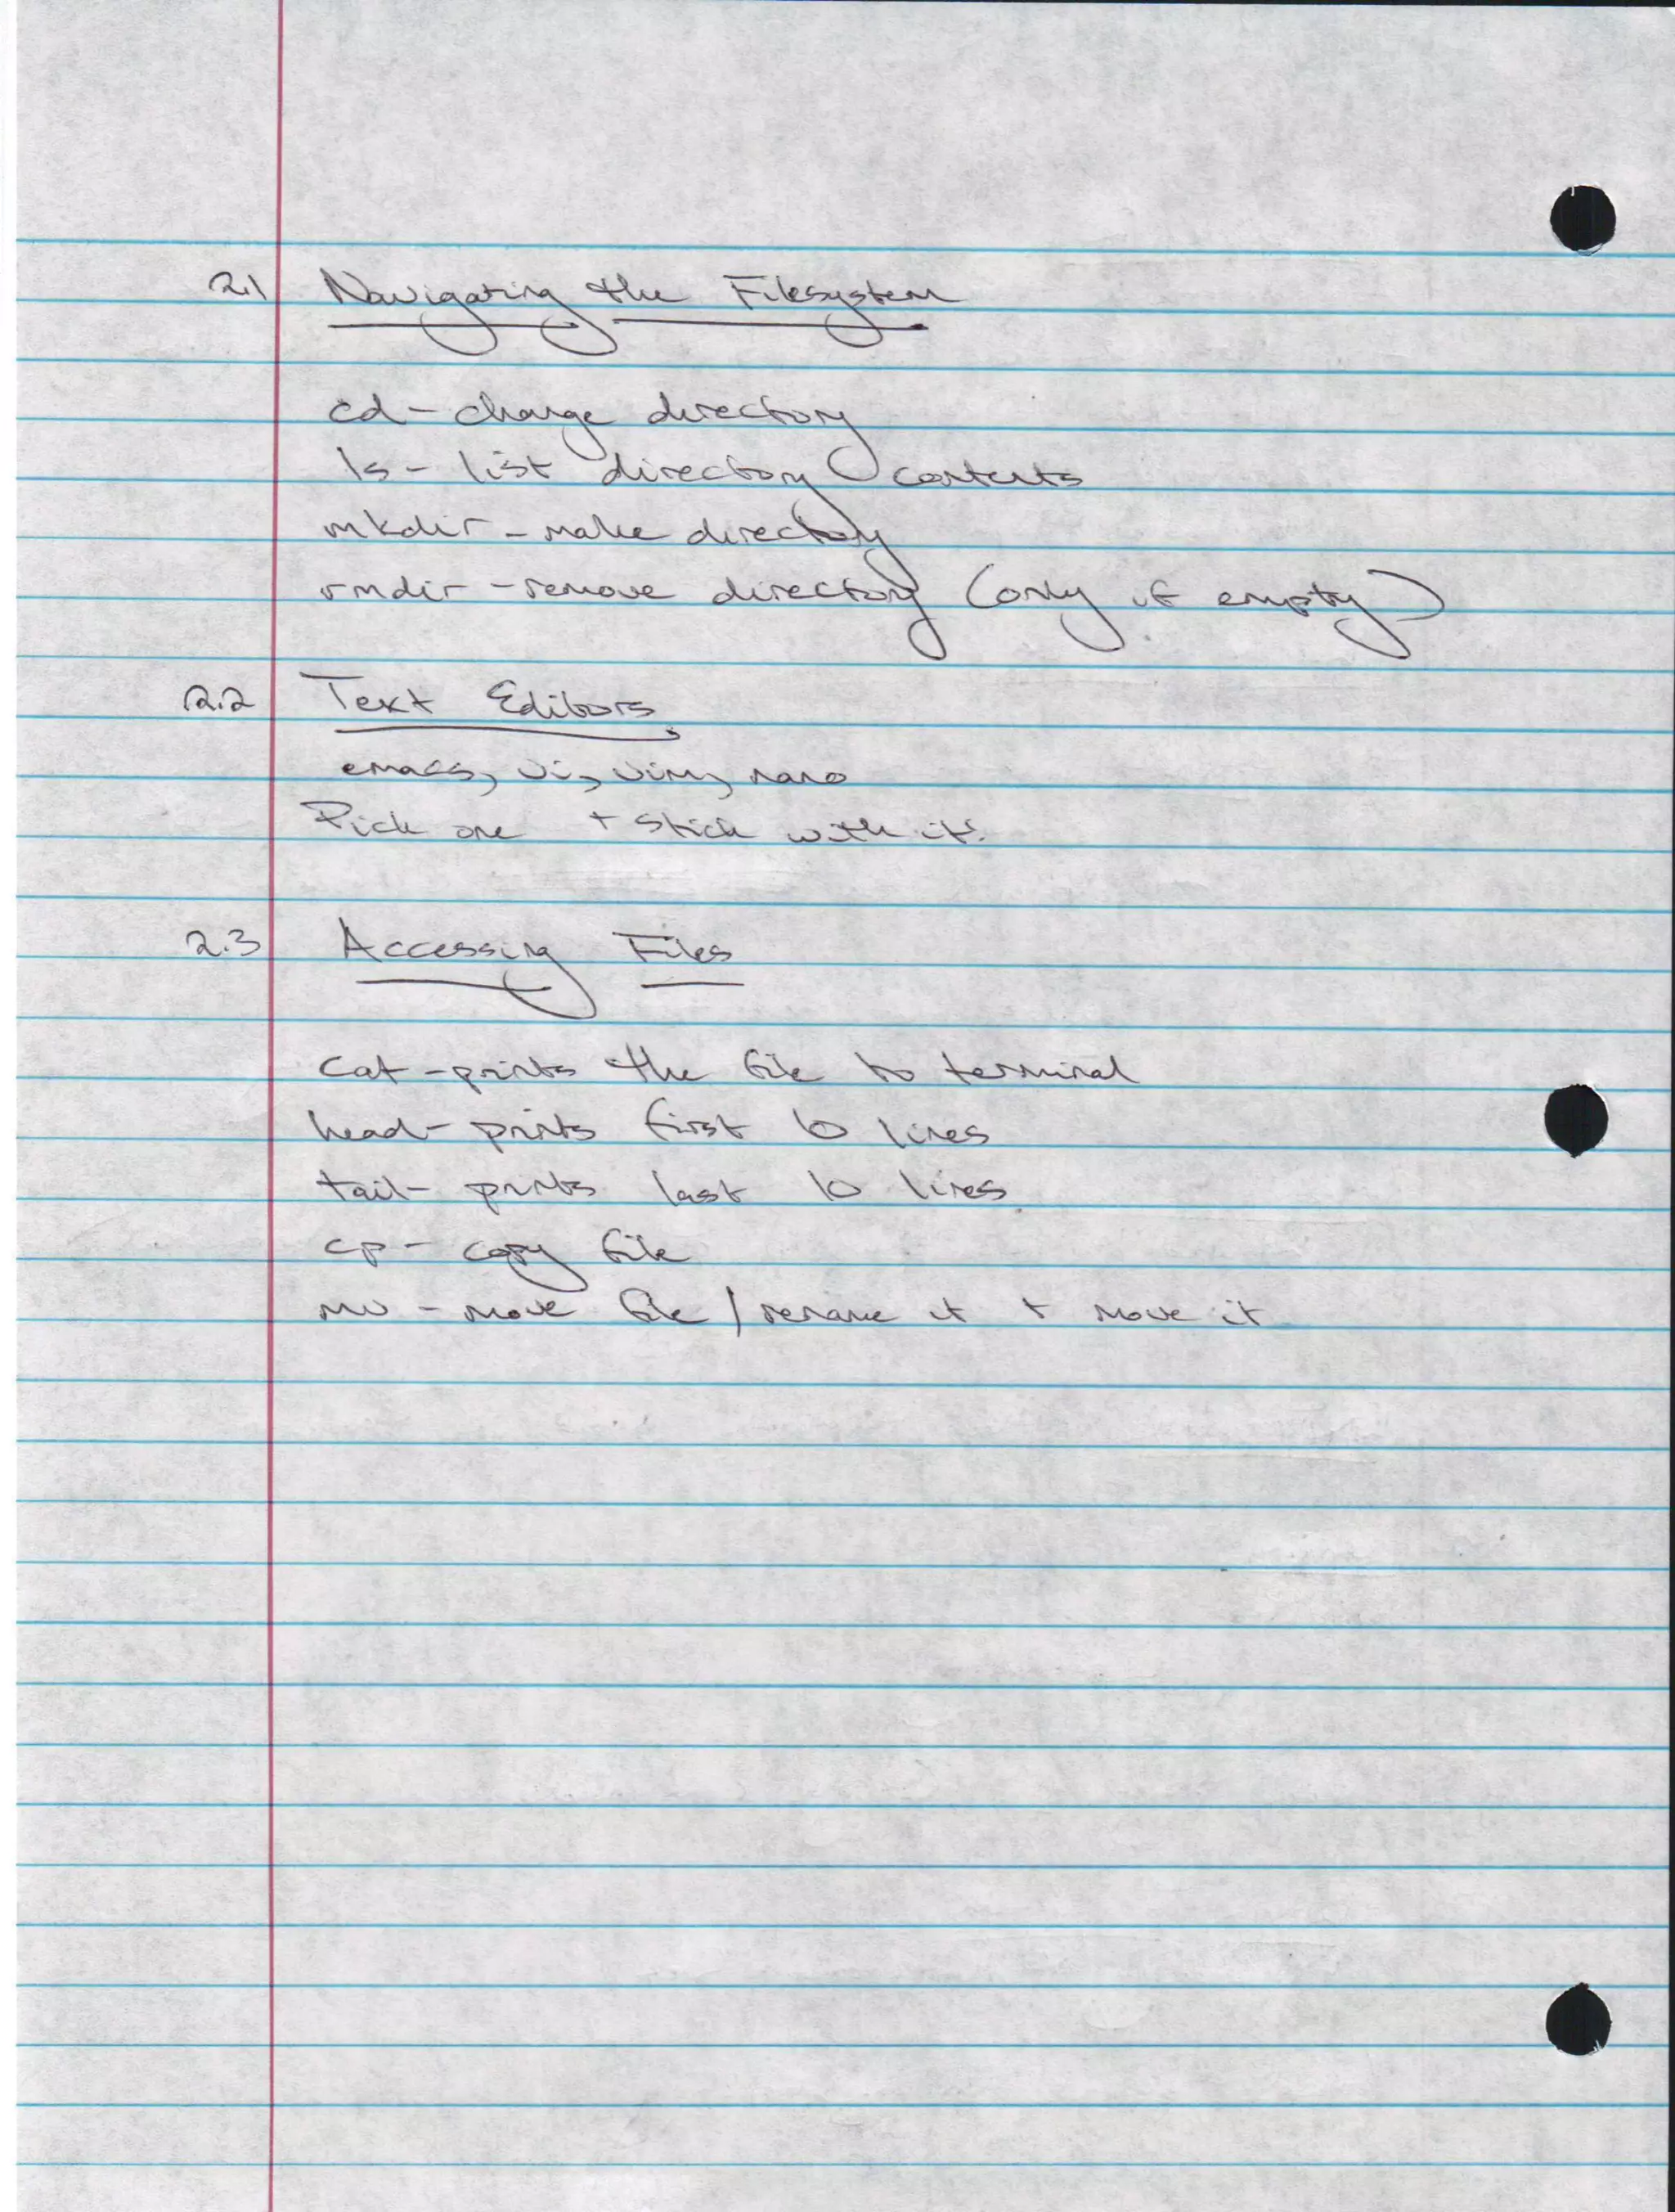 2.1 Navigating the Filesystem
cd - change directory
ls - list directory contents
mkdir - make directory
rmdir - remove directory (only if empty)
2.2 Text Editors
emacs, vi, vim, nano
Pick one + stick with it!
2.3 Accessing Files
cat - prints the file to terminal
head - prints first 10 lines
tail - prints last 10 lines
cp - copy file
mv - move file / rename it + move it